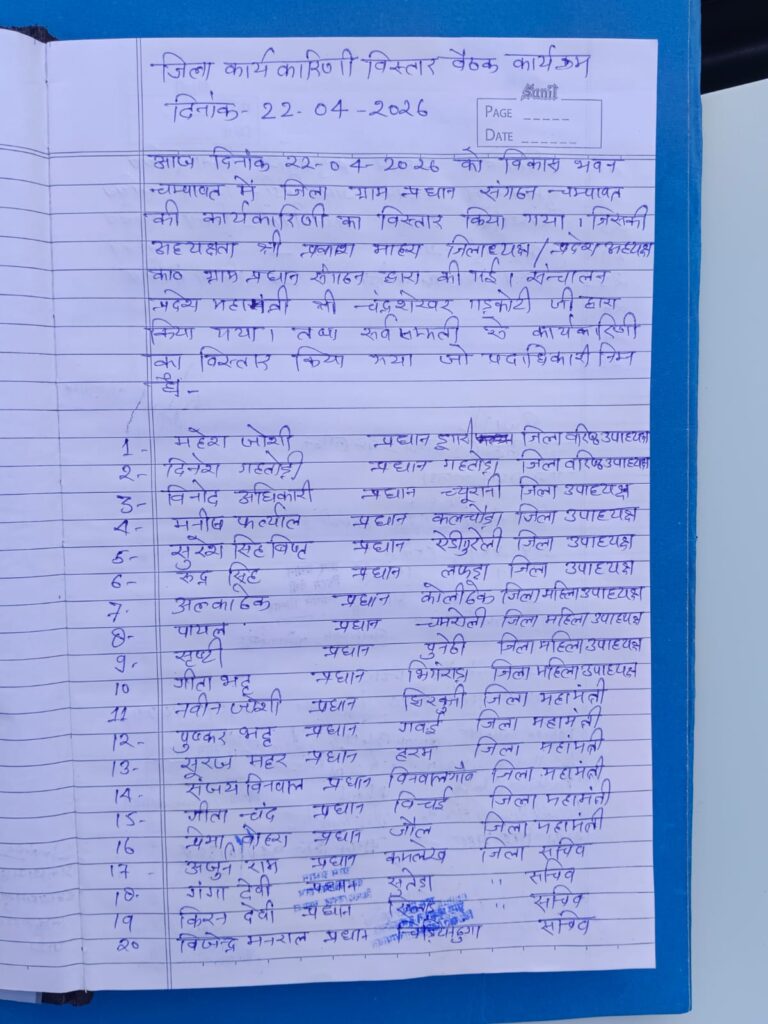 जिला कार्यकारिणी विस्तार बैठक कार्यक्रम
दिनांक- 22-04-2026
Sunil
PAGE
DATE
आज दिनांक 22-04-2026 को विकास भवन
चम्पावत में जिला ग्राम प्रधान संगठन चम्पावत
की कार्यकारिणी का विस्तार किया गया। जिसकी
अध्यक्षता श्री प्रकाश माहरा जिलाध्यक्ष / प्रदेश अध्यक्ष
का० ग्राम प्रधान संगठन द्वारा की गई। संचालन
प्रदेश महामंत्री श्री चंद्रशेखर गड़कोटी जी द्वारा
किया गया। तथा सर्वसम्मती से कार्यकारिणी
का विस्तार किया गया जो पदाधिकारी निम्न
है।-
1- महेश जोशी प्रधान जिला वरिष्ठ उपाध्यक्ष
2- दिनेश गहतोड़ी प्रधान गहतोड़ा जिला वरिष्ठ उपाध्यक्ष
3- विनोद अधिकारी प्रधान च्यूरानी जिला उपाध्यक्ष
4- मनीष फर्त्याल प्रधान कलचौड़ा जिला उपाध्यक्ष
5- सुरेश सिंह बिष्ट प्रधान जिला उपाध्यक्ष
6- रुद्र सिंह प्रधान लफड़ा जिला उपाध्यक्ष
7- अल्का ढेक प्रधान कोलीढेक जिला महिला उपाध्यक्ष
8- पायल प्रधान चमरोली जिला महिला उपाध्यक्ष
9. सृष्टी प्रधान पुनेठी जिला महिला उपाध्यक्ष
10 गीता भट्ट प्रधान भिंगराड़ा जिला महिला उपाध्यक्ष
11 नवीन जोशी प्रधान जिला महामंती
12- पुष्कर भट्ट प्रधान गवई जिला महामंती
13- सूरज महर प्रधान हरम जिला महामंती
14- संजय विनवाल प्रधान विनवालगाँव जिला महामंती
15- गीता चंद प्रधान विचई जिला महामंती
16 प्रेमा बोहरा प्रधान जौल जिला महामंती
17- अर्जुन राम प्रधान कमलेख जिला सचिव
18- गंगा देवी प्रधान सुतेड़ा " सचिव
19 किरन देवी प्रधान " सचिव
20 विजेन्द्र मनराल प्रधान सचिव